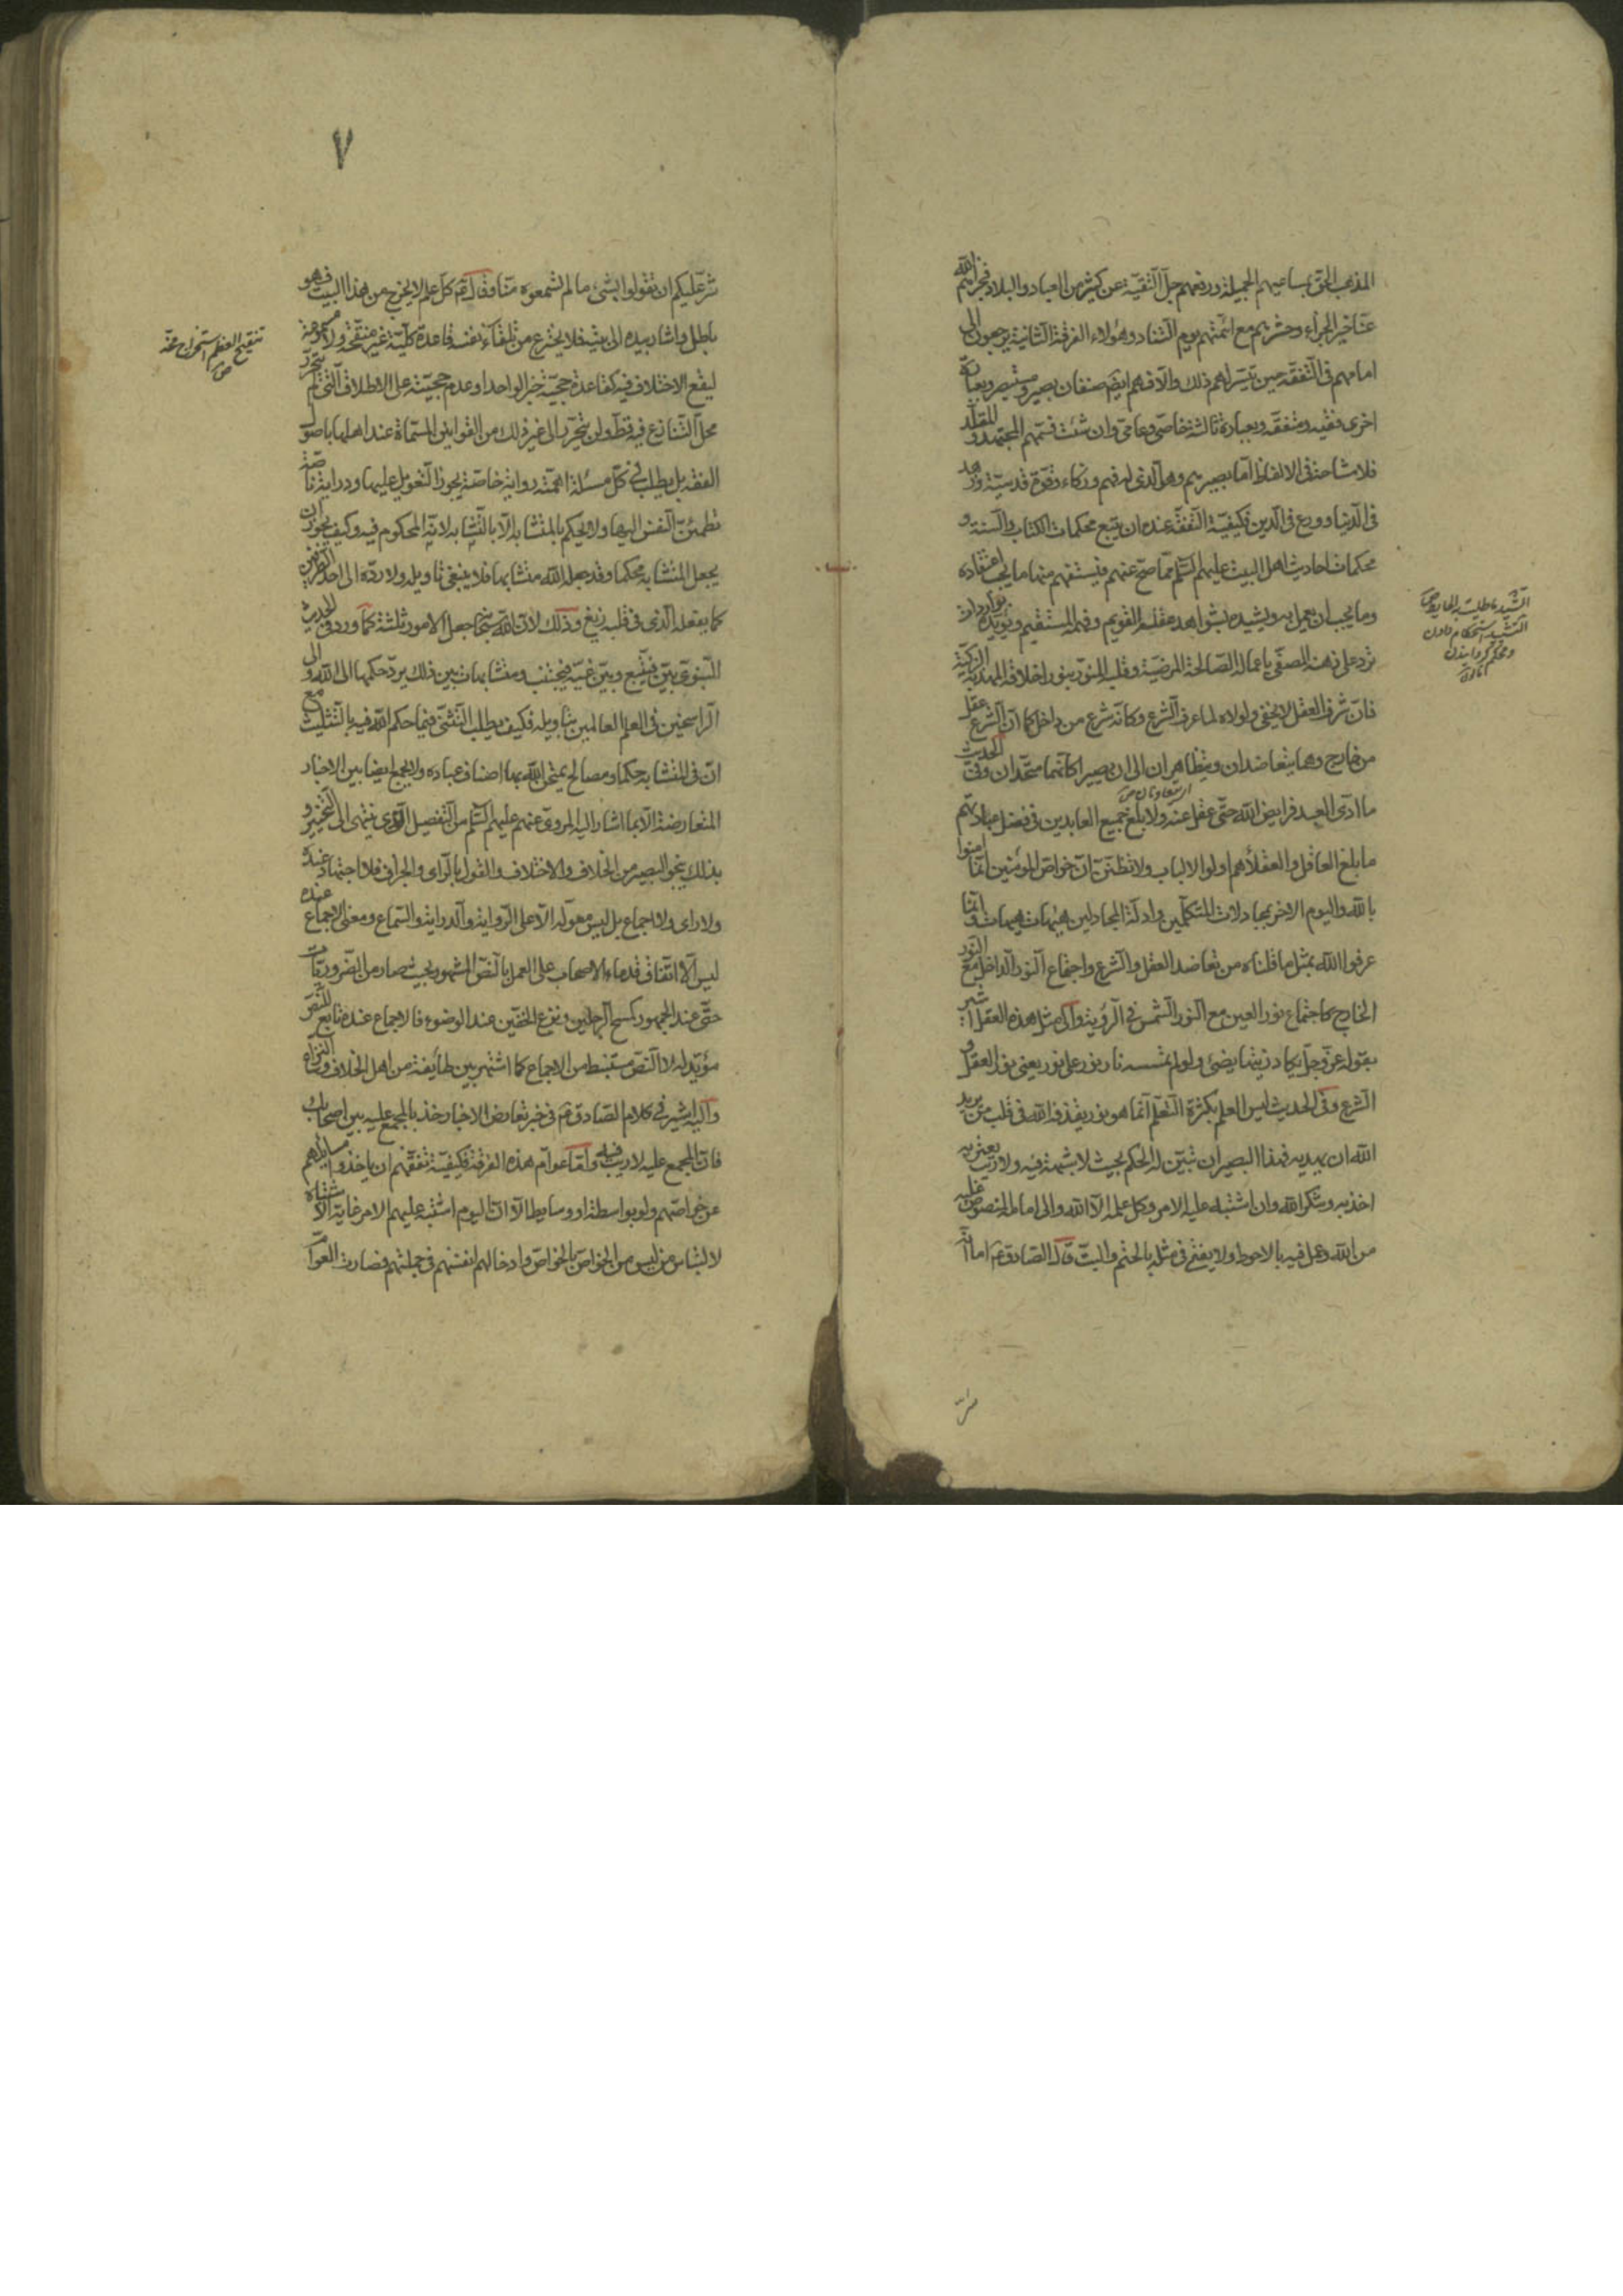 المذهب الحق بمساعيهم الجميلة ورفعهم جل التقية عن كثير من العباد والبلاد فجزاهم الله
عنا خير الجزاء وحشرهم مع ائمتهم يوم التناد وهؤلاء الفرقة الثانية يرجعون الى
امامهم فى التفقه حين تيسر لهم ذلك والا فهم ايضا صنفان بصير ومستبصر وبعبارة
اخرى فقيه ومتفقه وبعبارة ثالثة خاصى وعامى وان شئت فسمهم المجتهد والمقلد
فلا مشاحة فى الالفاظ اما بصيرهم وهو الذى له فهم وذكاء وقوة قدسية وزهد
فى الدنيا وورع فى الدين فكيفية التفقه عنده ان يتبع محكمات الكتاب والسنة و
محكمات احاديث اهل البيت عليهم السلم مما صح عنهم فيستفهم منها ما يجب اعتقاده
وما يجب ان يعمل به ويشيده بشواهد عقله القويم وفهمه المستقيم ويؤيده بواردات
ترد على ذهنه المصفى باعماله الصالحة المرضية وقلبه المنور بنور اخلاقه المهذبة الزكية
فان شرف العقل لا يخفى ولولاه لما عرف الشرع وكانه شرع من داخل كما ان الشرع عقل
من خارج وهما يتعاضدان ويتظاهران الى ان يصيرا كانهما متحدان وفى الحديث
ما ادى العبد فرايض الله حتى عقل عنه ولا بلغ جميع العابدين فى فضل عبادتهم
ما بلغ العاقل والعقلاء هم اولوا الالباب ولا تظنن ان خواص المؤمنين انما امنوا
بالله واليوم الاخر بمجادلات المتكلمين وادلة المجادلين هيهات هيهات وانما
عرفوا الله بمثل ما قلناه من تعاضد العقل والشرع واجتماع النور الداخل مع النور
الخارج كاجتماع نور العين مع النور الشمس فى الرؤية والى مثل هذه العقل اشير
بقوله عز وجل يكاد زيتها يضئ ولو لم تمسسه نار نور على نور يعنى نور العقل و
الشرع وفى الحديث ليس العلم بكثرة التعلم انما هو نور يقذفه الله فى قلب من يريد
الله ان يهديه فهذا البصير ان تبين له الحكم بحيث لا شبهة فيه ولا ريب يعتريه
اخذ به وشكر الله وان اشتبه عليه الامر وكل علمه الا الله والى امامه المنصوص عليه
من الله وعمل فيه بالاحوط ولا يفتى فى مثله بالحتم والبت قال الصادق ع اما انه
شر عليكم ان تقولوا بشئ ما لم تسمعوه منا وقال ع كل علم لا يخرج من هذا البيت فهو
باطل واشار بيده الى بيته فلا يخترع من تلقاء نفسه قاعدة كلية غير منقحة ولا مسموعة
ليقع الاختلاف فيه كقاعدة حجية خبر الواحد او عدم حجيته على الاطلاق التى لم يتحرر
محل التنازع فيه قط ولن يتحرر الى غير ذلك من القوانين المسماة عند اهلها باصول
الفقه بل يطلب فى كل مسئلة اهمته رواية خاصة يجوز التعويل عليها ودراية خاصة
تطمئن النفس اليها ولا يحكم بالمتشابه الا بالتشابه لانه المحكوم فيه وكيف يجوز ان
يجعل المتشابه محكما وقد جعله الله متشابها فلا ينبغى تاويله ولا رده الى احد الطرفين
كما يفعله الذى فى قلبه زيغ وذلك لان الله سبحانه جعل الامور ثلثة كما ورد فى الحديث
النبوى بين فيتبع وبين غيه فيجتنب ومتشابهات بين ذلك يرد حكمها الى الله والى
الراسخين فى العلم العالمين بتاويله فكيف يطلب التثنى فيما حكم الله فيه بالتثليث مع
ان فى المتشابه حكما ومصالح يمتحن الله بها اصناف عباده ولا يجمع ايضا بين الاخبار
المتعارضة الا بما اشار اليه المروى عنهم عليهم السلم من التفصيل الذى ينتهى الى التخيير و
بذلك ينجو البصير من الخلاف والاختلاف والقول بالراى والجزاف فلا اجتهاد عنده
ولا راى ولا اجماع بل ليس معوله الا على الرواية والدراية والسماع ومعنى الاجماع عنده
ليس الا اتفاق قدماء الاصحاب على العمل بالنص المشهور بحيث صار من الضروريات
حتى عند الجمهور كمسح الرجلين ونزع الخفين عند الوضوء فالاجماع عنده تابع للنص
مؤيد له لا النص مستنبط من الاجماع كما اشتهر بين طائفة من اهل الخلاف
واليه اشير فى كلام الصادق ع فى خبر تعارض الاخبار خذ بالمجمع عليه بين اصحابك
فان المجمع عليه لا ريب فيه واما عوام هذه الفرقة فكيفية تفقههم ان ياخذوا مسايلهم
عن خواصهم ولو بواسطة او وسايط الا ان اليوم اشتبه عليهم الامر غاية الاشتباه
لالتباس من ليس من الخواص بالخواص وادخالهم انفسهم فى جملتهم فصارت العوام
٧
تنقيح العظم استخراج مخه